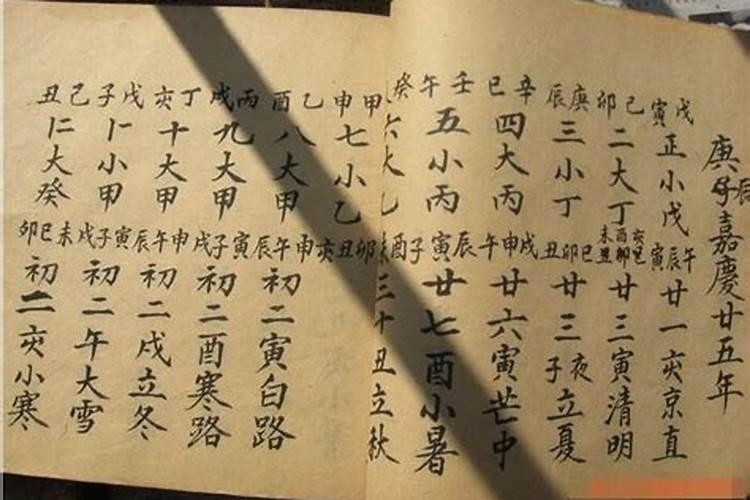 庚子辰嘉慶廿五年
戊寅正小戊午辰寅廿一亥京直
己卯二大丁亥酉未巳卯丑廿三寅清明
庚辰三小丁巳卯丑廿三夜子立夏
辛巳四大丙戌申午廿六寅芒中
壬午五小丙辰寅子廿七酉小暑
癸六大乙酉三十丑立秋
甲申七小乙卯丑亥
乙酉八大甲申午辰初二寅白路
丙戌九大甲寅子戌初二酉寒路
丁亥十大甲申午辰初二戌立冬
戊子小甲寅子戌初二午大雪
己丑大癸未巳卯初二亥小寒